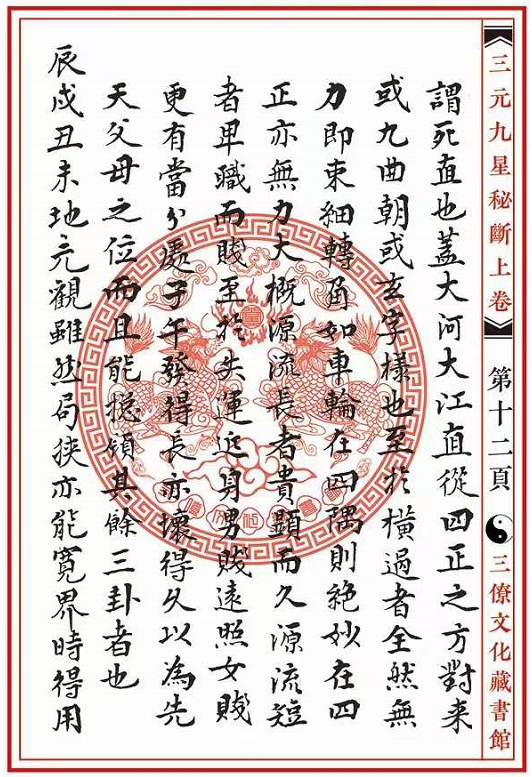 《三元九星秘斷上卷》 第十二頁 三僚文化藏書館
謂死直也蓋大河大江直從四正之方對来
或九曲朝或玄字樣也至於橫過者全然無
力即束細轉角如車輪在四隅則絶妙在四
正亦無力大概源流長者貴顯而久源流短
者卑職而賤至於失運近身男賤遠照女賤
更有當分處子午發得長亦壞得久以為先
天父母之位而且能揔領其餘三卦者也
辰戌丑未地元觀雖然局狹亦能寬界時得用